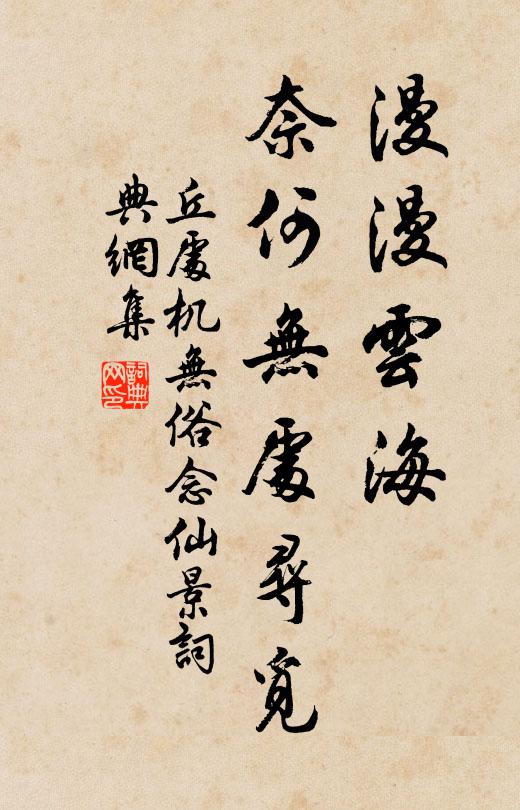 漫漫雲海
奈何無處尋覓
丘處机無俗念仙景詞
典網集
詞典
网印